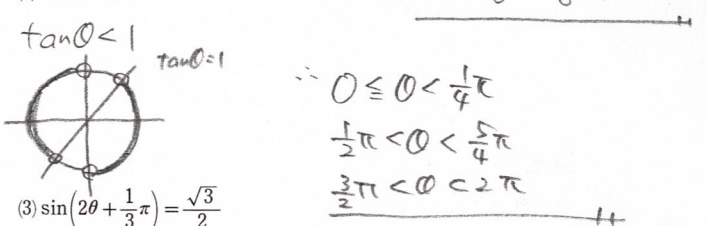 tanθ<1
tanθ=1
∴ 0≦θ<1/4π
1/2π<θ<5/4π
3/2π<θ<2π
(3) sin(2θ+1/3π)=√3/2